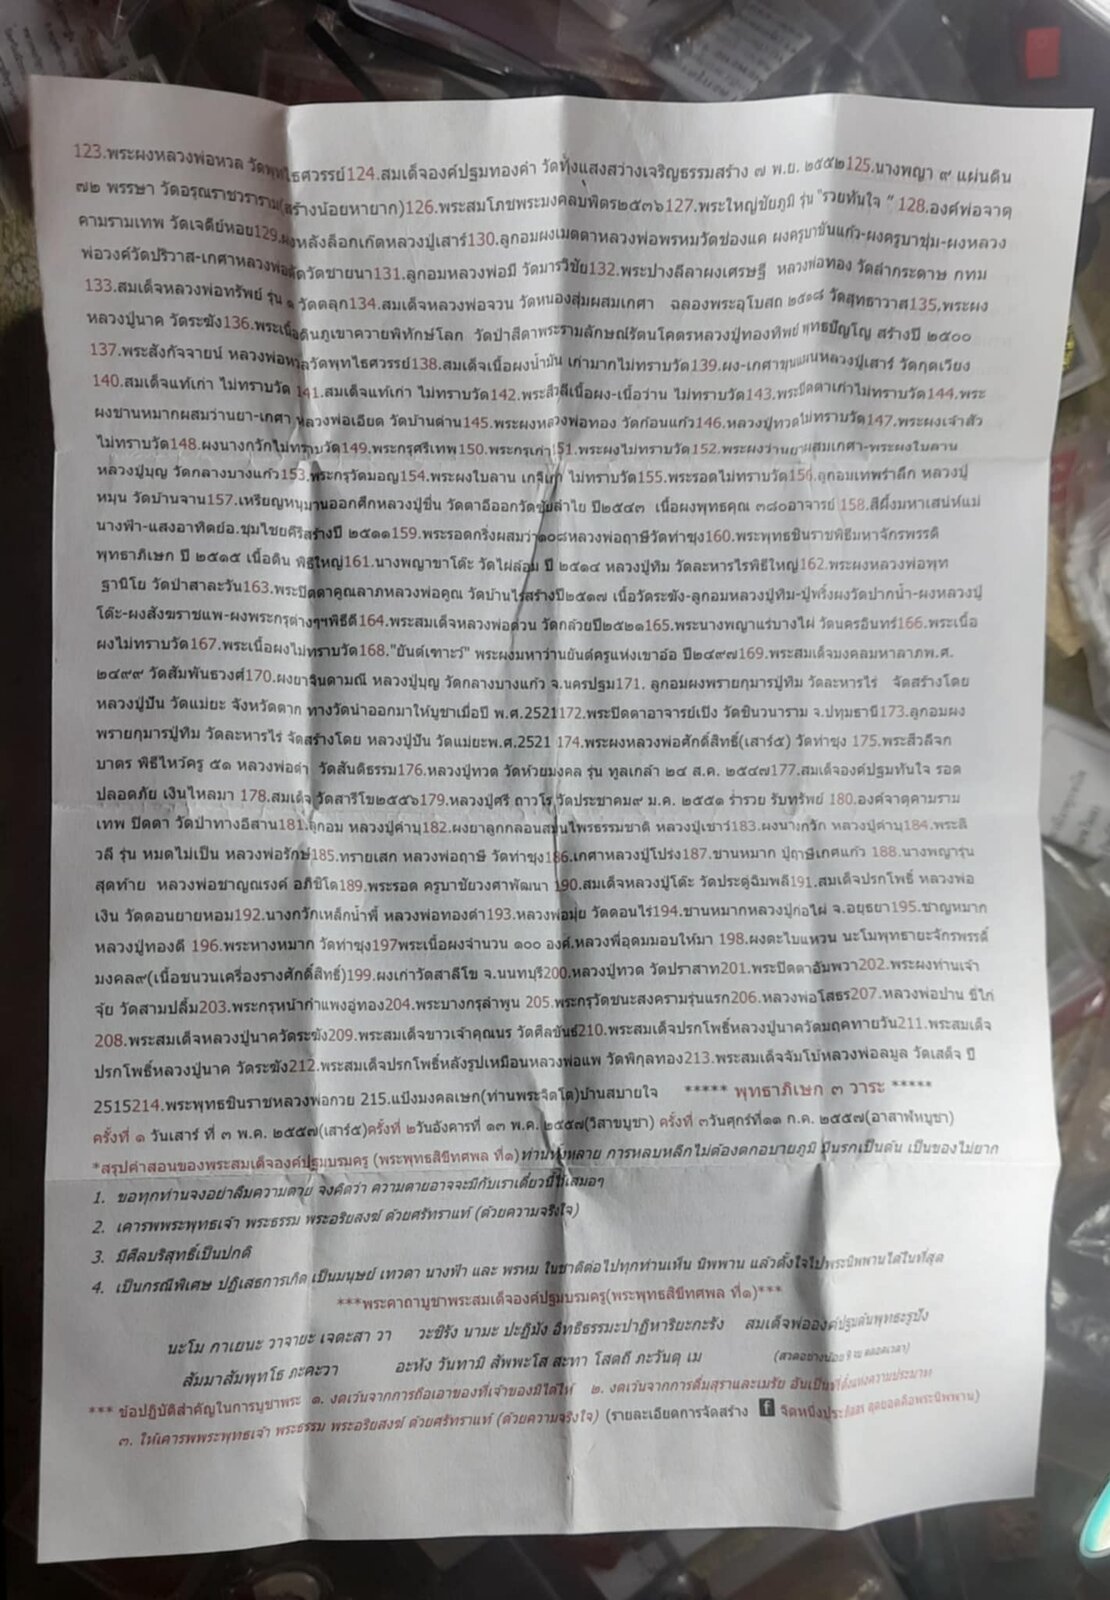 123.พระผงหลวงพ่อหวล วัดพุทไธศวรรย์124.สมเด็จองค์ปฐมทองคำ วัดทุ่งแสงสว่างเจริญธรรมสร้าง ๗ พ.ย. ๒๕๕๒125.นางพญา ๙ แผ่นดิน
๗๒ พรรษา วัดอรุณราชวราราม(สร้างน้อยหายาก)126.พระสมโภชพระมงคลบพิตร๒๕๓๖127.พระใหญ่ชัยภูมิ รุ่น "รวยทันใจ " 128.องค์พ่อจาตุ
คามรามเทพ วัดเจดีย์หอย129.ผงหลังล็อกเก๊ตหลวงปู่เสาร์130.ลูกอมผงเมตตาหลวงพ่อพรหมวัดช่องแค ผงครูบาขันแก้ว-ผงครูบาชุ่ม-ผงหลวง
พ่อวงศ์วัดปริวาส-เกศาหลวงพ่อตัดวัดชายนา131.ลูกอมหลวงพ่อมี วัดมารวิชัย132.พระปางลีลาผงเศรษฐี หลวงพ่อทอง วัดลำกระดาษ กทม
133.สมเด็จหลวงพ่อทรัพย์ รุ่น ๑ วัดตลุก134.สมเด็จหลวงพ่อจวน วัดหนองสุ่มผสมเกศา ฉลองพระอุโบสถ ๒๕๑๘ วัดสุทธาวาส135.พระผง
หลวงปู่นาค วัดระฆัง136.พระเนื้อดินภูเขาควายพิทักษ์โลก วัดป่าสีดาพระรามลักษณ์รัตนโคตรหลวงปู่ทองทิพย์ พุทธปัญโญ สร้างปี ๒๕๐๐
137.พระสังกัจจายน์ หลวงพ่อหวลวัดพุทไธศวรรย์138.สมเด็จเนื้อผงน้ำมัน เก่ามากไม่ทราบวัด139.ผง-เกศาขุนแผนหลวงปู่เสาร์ วัดกุดเวียง
140.สมเด็จแท้เก่า ไม่ทราบวัด 141.สมเด็จแท้เก่า ไม่ทราบวัด142.พระสีวลีเนื้อผง-เนื้อว่าน ไม่ทราบวัด143.พระปิดตาเก่าไม่ทราบวัด144.พระ
ผงชานหมากผสมว่านยา-เกศา หลวงพ่อเอียด วัดบ้านด่าน145.พระผงหลวงพ่อทอง วัดก้อนแก้ว146.หลวงปู่ทวดไม่ทราบวัด147.พระผงเจ้าสัว
ไม่ทราบวัด148.ผงนางกวักไม่ทราบวัด149.พระกรุศรีเทพ150.พระกรุเก่า151.พระผงไม่ทราบวัด152.พระผงว่านยาผสมเกศา-พระผงใบลาน
หลวงปู่บุญ วัดกลางบางแก้ว153.พระกรุวัดมอญ154.พระผงใบลาน เกจิเก่า ไม่ทราบวัด155.พระรอดไม่ทราบวัด156.ลูกอมเทพรำลึก หลวงปู่
หมุน วัดบ้านจาน157.เหรียญหนุมานออกศึกหลวงปู่ชื่น วัดตาอีออกวัดชัยลำไย ปี๒๕๔๓ เนื้อผงพุทธคุณ ๓๘๐อาจารย์ 158.สีผึ้งมหาเสน่ห์แม่
นางฟ้า-แสงอาทิตย์อ.ชุมไชยคีรีสร้างปี ๒๕๑๑159.พระรอดกริ่งผสมว่า๑๐๘หลวงพ่อฤาษีวัดท่าซุง160.พระพุทธชินราชพิธีมหาจักรพรรดิ
พุทธาภิเษก ปี ๒๕๑๕ เนื้อดิน พิธีใหญ่161.นางพญาขาโต๊ะ วัดไผ่ล้อม ปี ๒๕๑๔ หลวงปู่ทิม วัดละหารไรพิธีใหญ่162.พระผงหลวงพ่อพุท
ฐานิโย วัดป่าสาละวัน163.พระปิดตาคูณลาภหลวงพ่อคูณ วัดบ้านไร่สร้างปี๒๕๑๗ เนื้อวัดระฆัง-ลูกอมหลวงปู่ทิม-ปู่พริ้งผงวัดปากน้ำ-ผงหลวงปู่
โต๊ะ-ผงสังฆราชแพ-ผงพระกรุต่างๆฯพิธีดี164.พระสมเด็จหลวงพ่อด่วน วัดกล้วยปี๒๕๒๑165.พระนางพญาแร่บางไผ่ วัดนครอินทร์166.พระเนื้อ
ผงไม่ทราบวัด167.พระเนื้อผงไม่ทราบวัด168."ยันต์เฑาะว์" พระผงมหาว่านยันต์ครูแห่งเขาอ้อ ปี๒๔๙๗169.พระสมเด็จมงคลมหาลาภพ.ศ.
๒๔๙๙ วัดสัมพันธวงศ์170.ผงยาจินดามณี หลวงปู่บุญ วัดกลางบางแก้ว จ.นครปฐม171. ลูกอมผงพรายกุมารปู่ทิม วัดละหารไร่ จัดสร้างโดย
หลวงปู่ปัน วัดแม่ยะ จังหวัดตาก ทางวัดนำออกมาให้บูชาเมื่อปี พ.ศ.2521172.พระปิดตาอาจารย์เปิง วัดชินวนาราม จ.ปทุมธานี173.ลูกอมผง
พรายกุมารปู่ทิม วัดละหารไร่ จัดสร้างโดย หลวงปู่ปัน วัดแม่ยะพ.ศ.2521 174.พระผงหลวงพ่อศักดิ์สิทธิ์(เสาร์๕) วัดท่าซุง 175.พระสีวลีจก
บาตร พิธีไหว้ครู ๕๑ หลวงพ่อดำ วัดสันติธรรม176.หลวงปู่ทวด วัดห้วยมงคล รุ่น ทูลเกล้า ๒๔ ส.ค. ๒๕๔๗177.สมเด็จองค์ปฐมทันใจ รอด
ปลอดภัย เงินไหลมา 178.สมเด็จ วัดสารีโข๒๕๕๖179.หลวงปู่ศรี ถาวโร วัดประชาคม๙ ม.ค. ๒๕๕๑ ร่ำรวย รับทรัพย์ 180.องค์จาตุคามราม
เทพ ปิดตา วัดป่าทางอีสาน181.ลูกอม หลวงปู่คำบุ182.ผงยาลูกกลอนสมุนไพรธรรมชาติ หลวงปู่เชาว์183.ผงนางกวัก หลวงปู่คำบุ184.พระสิ
วลี รุ่น หมดไม่เป็น หลวงพ่อรักษ์185.ทรายเสก หลวงพ่อฤาษี วัดท่าซุง186.เกศาหลวงปู่โปร่ง187.ชานหมาก ปู่ฤาษีเกศแก้ว 188.นางพญารุ่น
สุดท้าย หลวงพ่อชาญณรงค์ อภิชิโต189.พระรอด ครูบาชัยวงศาพัฒนา 190.สมเด็จหลวงปู่โต๊ะ วัดประดู่ฉิมพลี191.สมเด็จปรกโพธิ์ หลวงพ่อ
เงิน วัดดอนยายหอม192.นางกวักเหล็กน้ำพี้ หลวงพ่อทองดำ193.หลวงพ่อมุ่ย วัดดอนไร่194.ชานหมากหลวงปู่ก่อไผ่ จ.อยุธยา195.ชาญหมาก
หลวงปู่ทองดี 196.พระหางหมาก วัดท่าซุง197พระเนื้อผงจำนวน ๑๐๐ องค์.หลวงพี่อุดมมอบให้มา 198.ผงตะไบแหวน นะโมพุทธายะจักรพรรดิ์
มงคล๙(เนื้อชนวนเครื่องรางศักดิ์สิทธิ์)199.ผงเก่าวัดสาลีโข จ.นนทบุรี200.หลวงปู่ทวด วัดปราสาท201.พระปิดตาอัมพวา202.พระผงท่านเจ้า
จุ้ย วัดสามปลื้ม203.พระกรุหน้ากำแพงอู่ทอง204.พระบางกรุลำพูน 205.พระกรุวัดชนะสงครามรุ่นแรก206.หลวงพ่อโสธร207.หลวงพ่อปาน ขี่ไก่
208.พระสมเด็จหลวงปู่นาควัดระฆัง209.พระสมเด็จขาวเจ้าคุณนร วัดศีลขันธ์210.พระสมเด็จปรกโพธิ์หลวงปู่นาควัดมฤคทายวัน211.พระสมเด็จ
ปรกโพธิ์หลวงปู่นาค วัดระฆัง212.พระสมเด็จปรกโพธิ์หลังรูปเหมือนหลวงพ่อแพ วัดพิกุลทอง213.พระสมเด็จจัมโบ้หลวงพ่อลมูล วัดเสด็จ ปี
2515214.พระพุทธชินราชหลวงพ่อกวย 215.แป้งมงคลเษก(ท่านพระจิตโต)บ้านสบายใจ ***** พุทธาภิเษก ๓ วาระ *****
ครั้งที่ ๑ วันเสาร์ ที่ ๓ พ.ค. ๒๕๕๗(เสาร์๕)ครั้งที่ ๒วันอังคารที่ ๑๓ พ.ค. ๒๕๕๗(วิสาขบูชา) ครั้งที่ ๓วันศุกร์ที่๑๑ ก.ค. ๒๕๕๗(อาสาฬหบูชา)
*สรุปคำสอนของพระสมเด็จองค์ปฐมบรมครู (พระพุทธสิขีทศพล ที่๑)ท่านทั้งหลาย การหลบหลีกไม่ต้องตกอบายภูมิ มีนรกเป็นต้น เป็นของไม่ยาก
1. ขอทุกท่านจงอย่าลืมความตาย จงคิดว่า ความตายอาจจะมีกับเราเดี๋ยวนี้ไว้เสมอๆ
2. เคารพพระพุทธเจ้า พระธรรม พระอริยสงฆ์ ด้วยศรัทราแท้ (ด้วยความจริงใจ)
3. มีศีลบริสุทธิ์เป็นปกติ
4. เป็นกรณีพิเศษ ปฏิเสธการเกิด เป็นมนุษย์ เทวดา นางฟ้า และ พรหม ในชาติต่อไปทุกท่านเห็น นิพพาน แล้วตั้งใจไปพระนิพพานได้ในที่สุด
***พระคาถาบูชาพระสมเด็จองค์ปฐมบรมครู(พระพุทธสิขีทศพล ที่๑)***
นะโม กาเยนะ วาจายะ เจตะสา วา วะชิรัง นามะ ปะฏิมัง อิทธิธรรมะปาฏิหาริยะกะรัง สมเด็จพ่อองค์ปฐมต้นพุทธะรูปัง
สัมมาสัมพุทโธ ภะคะวา อะหัง วันทามิ สัพพะโส สะทา โสตถี ภะวันตุ เม (สวดอย่างน้อย 9 จบ ตลอดเวลา)
*** ข้อปฏิบัติสำคัญในการบูชาพระ ๑. งดเว้นจากการถือเอาของที่เจ้าของมิได้ให้ ๒. งดเว้นจากการดื่มสุราและเมรัย อันเป็นที่ตั้งแห่งความประมาท
๓. ให้เคารพพระพุทธเจ้า พระธรรม พระอริยสงฆ์ ด้วยศรัทราแท้ (ด้วยความจริงใจ) (รายละเอียดการจัดสร้าง f จิตหนึ่งประภัสสร สุดยอดคือพระนิพพาน)